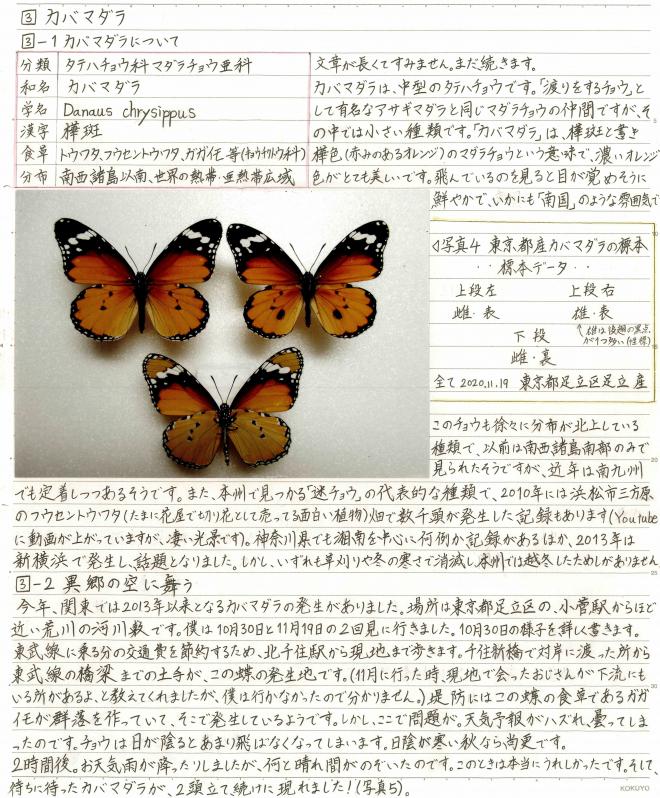 ③ カバマダラ
③-1 カバマダラについて
分類 タテハチョウ科マダラチョウ亜科
和名 カバマダラ
学名 Danaus chrysippus
漢字 樺斑
食草 トウワタ、フウセントウワタ、ガガイモ等(キョウチクトウ科)
分布 南西諸島以南、世界の熱帯・亜熱帯広域
文章が長くてすみません。まだ続きます。
カバマダラは、中型のタテハチョウです。「渡りをするチョウ」と
して有名なアサギマダラと同じマダラチョウの仲間ですが、そ
の中では小さい種類です。「カバマダラ」は、樺斑と書き
樺色(赤みのあるオレンジ)のマダラチョウという意味で、濃いオレンジ
色がとても美しいです。飛んでいるのを見ると目が覚めそうに
鮮やかで、いかにも「南国」のような雰囲気で
◁写真4 東京都産カバマダラの標本
・・標本データ・・
上段左 上段右
雌・表 雄・表
下段
雌・裏
↑雄は後翅の黒点
が1つ多い(性標)
全て2020.11.19 東京都足立区足立産
このチョウも徐々に分布が北上している
種類で、以前は南西諸島南部のみで
見られたそうですが、近年は南九州
でも定着しつつあるそうです。また、本州で見つかる「迷チョウ」の代表的な種類で、2010年には浜松市三方原
のフウセントウワタ(たまに花屋でも切り花として売ってる面白い植物)畑で数千頭が発生した記録もあります(Youtube
に動画が上がっていますが、凄い光景です)。神奈川県でも湘南を中心に何例か記録があるほか、2013年は
新横浜で発生し、話題となりました。しかし、いずれも草刈りや冬の寒さで消滅し、本州では越冬したためしがありません
③-2 異郷の空に舞う
今年、関東では2013年以来となるカバマダラの発生がありました。場所は東京都足立区の、小菅駅からほど
近い荒川の河川敷です。僕は10月30日と11月19日の2回見に行きました。10月30日の様子を詳しく書きます。
東武線に乗る分の交通費を節約するため、北千住駅から現地まで歩きます。千住新橋で対岸に渡った所から
東武線の橋梁までの土手が、この蝶の発生地です。(11月に行った時、現地で会ったおじさんが下流にも
いる所があるよ、と教えてくれましたが、僕は行かなかったので分かりません。)堤防にはこの蝶の食草であるガガ
イモが群落を作っていて、そこで発生しているようです。しかし、ここで問題が。天気予報がハズれ、曇ってしま
ったのです。チョウは日が陰るとあまり飛ばなくなってしまいます。日陰が寒い秋なら尚更です。
2時間後。お天気雨が降ったりしましたが、何と晴れ間がのぞいたのです。このときは本当にうれしかったです。そして、
待ちに待ったカバマダラが、2頭立て続けに現れました!(写真5)。
KOKUYO